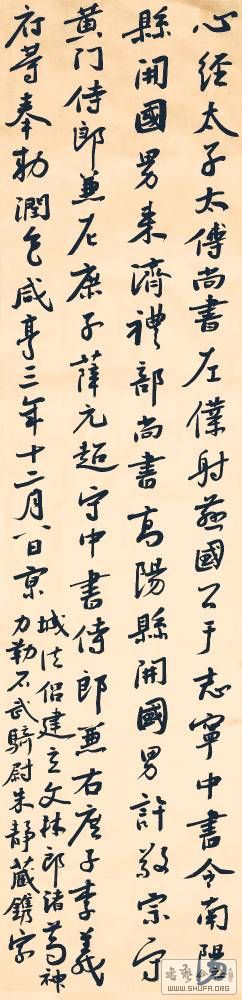 心經太子太傅尚書左僕射燕國公于志寧中書令南陽
縣開國男来濟禮部尚書高陽縣開國男許敬宗守
黄门侍郎兼左庶子薛元超守中書侍郎兼右庶子李義
府等奉勅潤色咸亨三年十二月八日京
城法侣建立文林郎诸葛神
力勒石武騎尉朱靜藏鐫字
書法公社
WWW.SHUFA.ORG